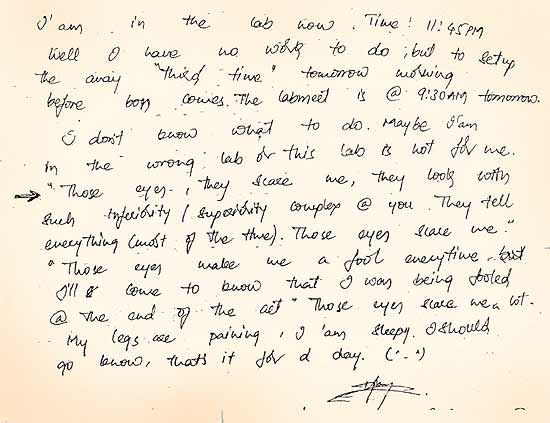 I'am in the lab now. Time! 11:45PM
Well I have no work to do, but to setup
the away "third time" tomorrow morning
before boss comes. The labmeet is @ 9:30AM tomorrow.
I don't know what to do. Maybe I'am
in the wrong lab or this lab is not for me.
"Those eyes, they scare me, they look with
such inferiority / superiority complex @ you. They tell
everything (most of the time). Those eyes scare me."
"Those eyes make me a fool everytime, but
I'll come to know that I was being fooled
@ the end of the act" Those eyes scare me a lot.
My legs are paining, I 'am sleepy. I should
go know, that's it for d day. (^-^)